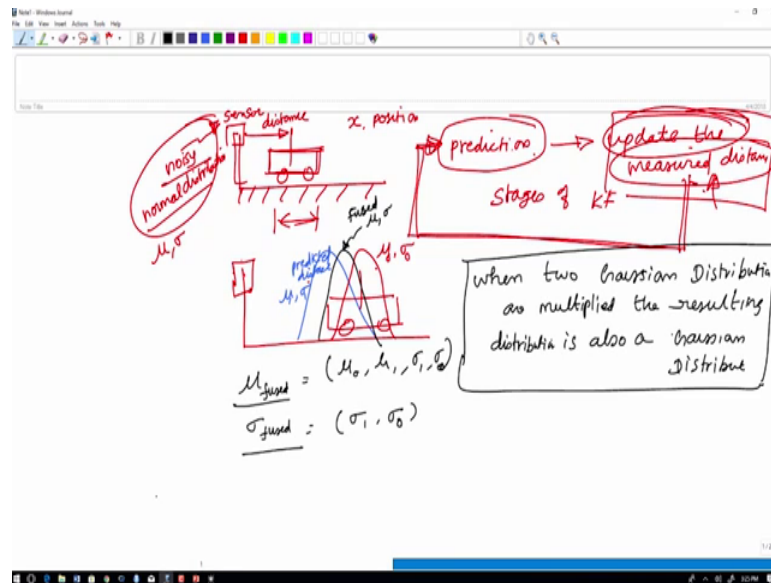 Note1 - Windows Journal
File Edit View Insert Actions Tools Help
B I
Note Title
4/4/2018
sensor
distance
x, position
noisy
normal distributio
μ, σ
prediction.
update the
measured distan
Stages of KF
fused
μ, σ
predicted
distance
μ, σ
μ, σ
When two Gaussian Distributio
are multiplied the resulting
distributin is also a Gaussian
Distribut
μfused = (μ0, μ1, σ1, σ0)
σfused = (σ1, σ0)
1/2
1
3:25 PM